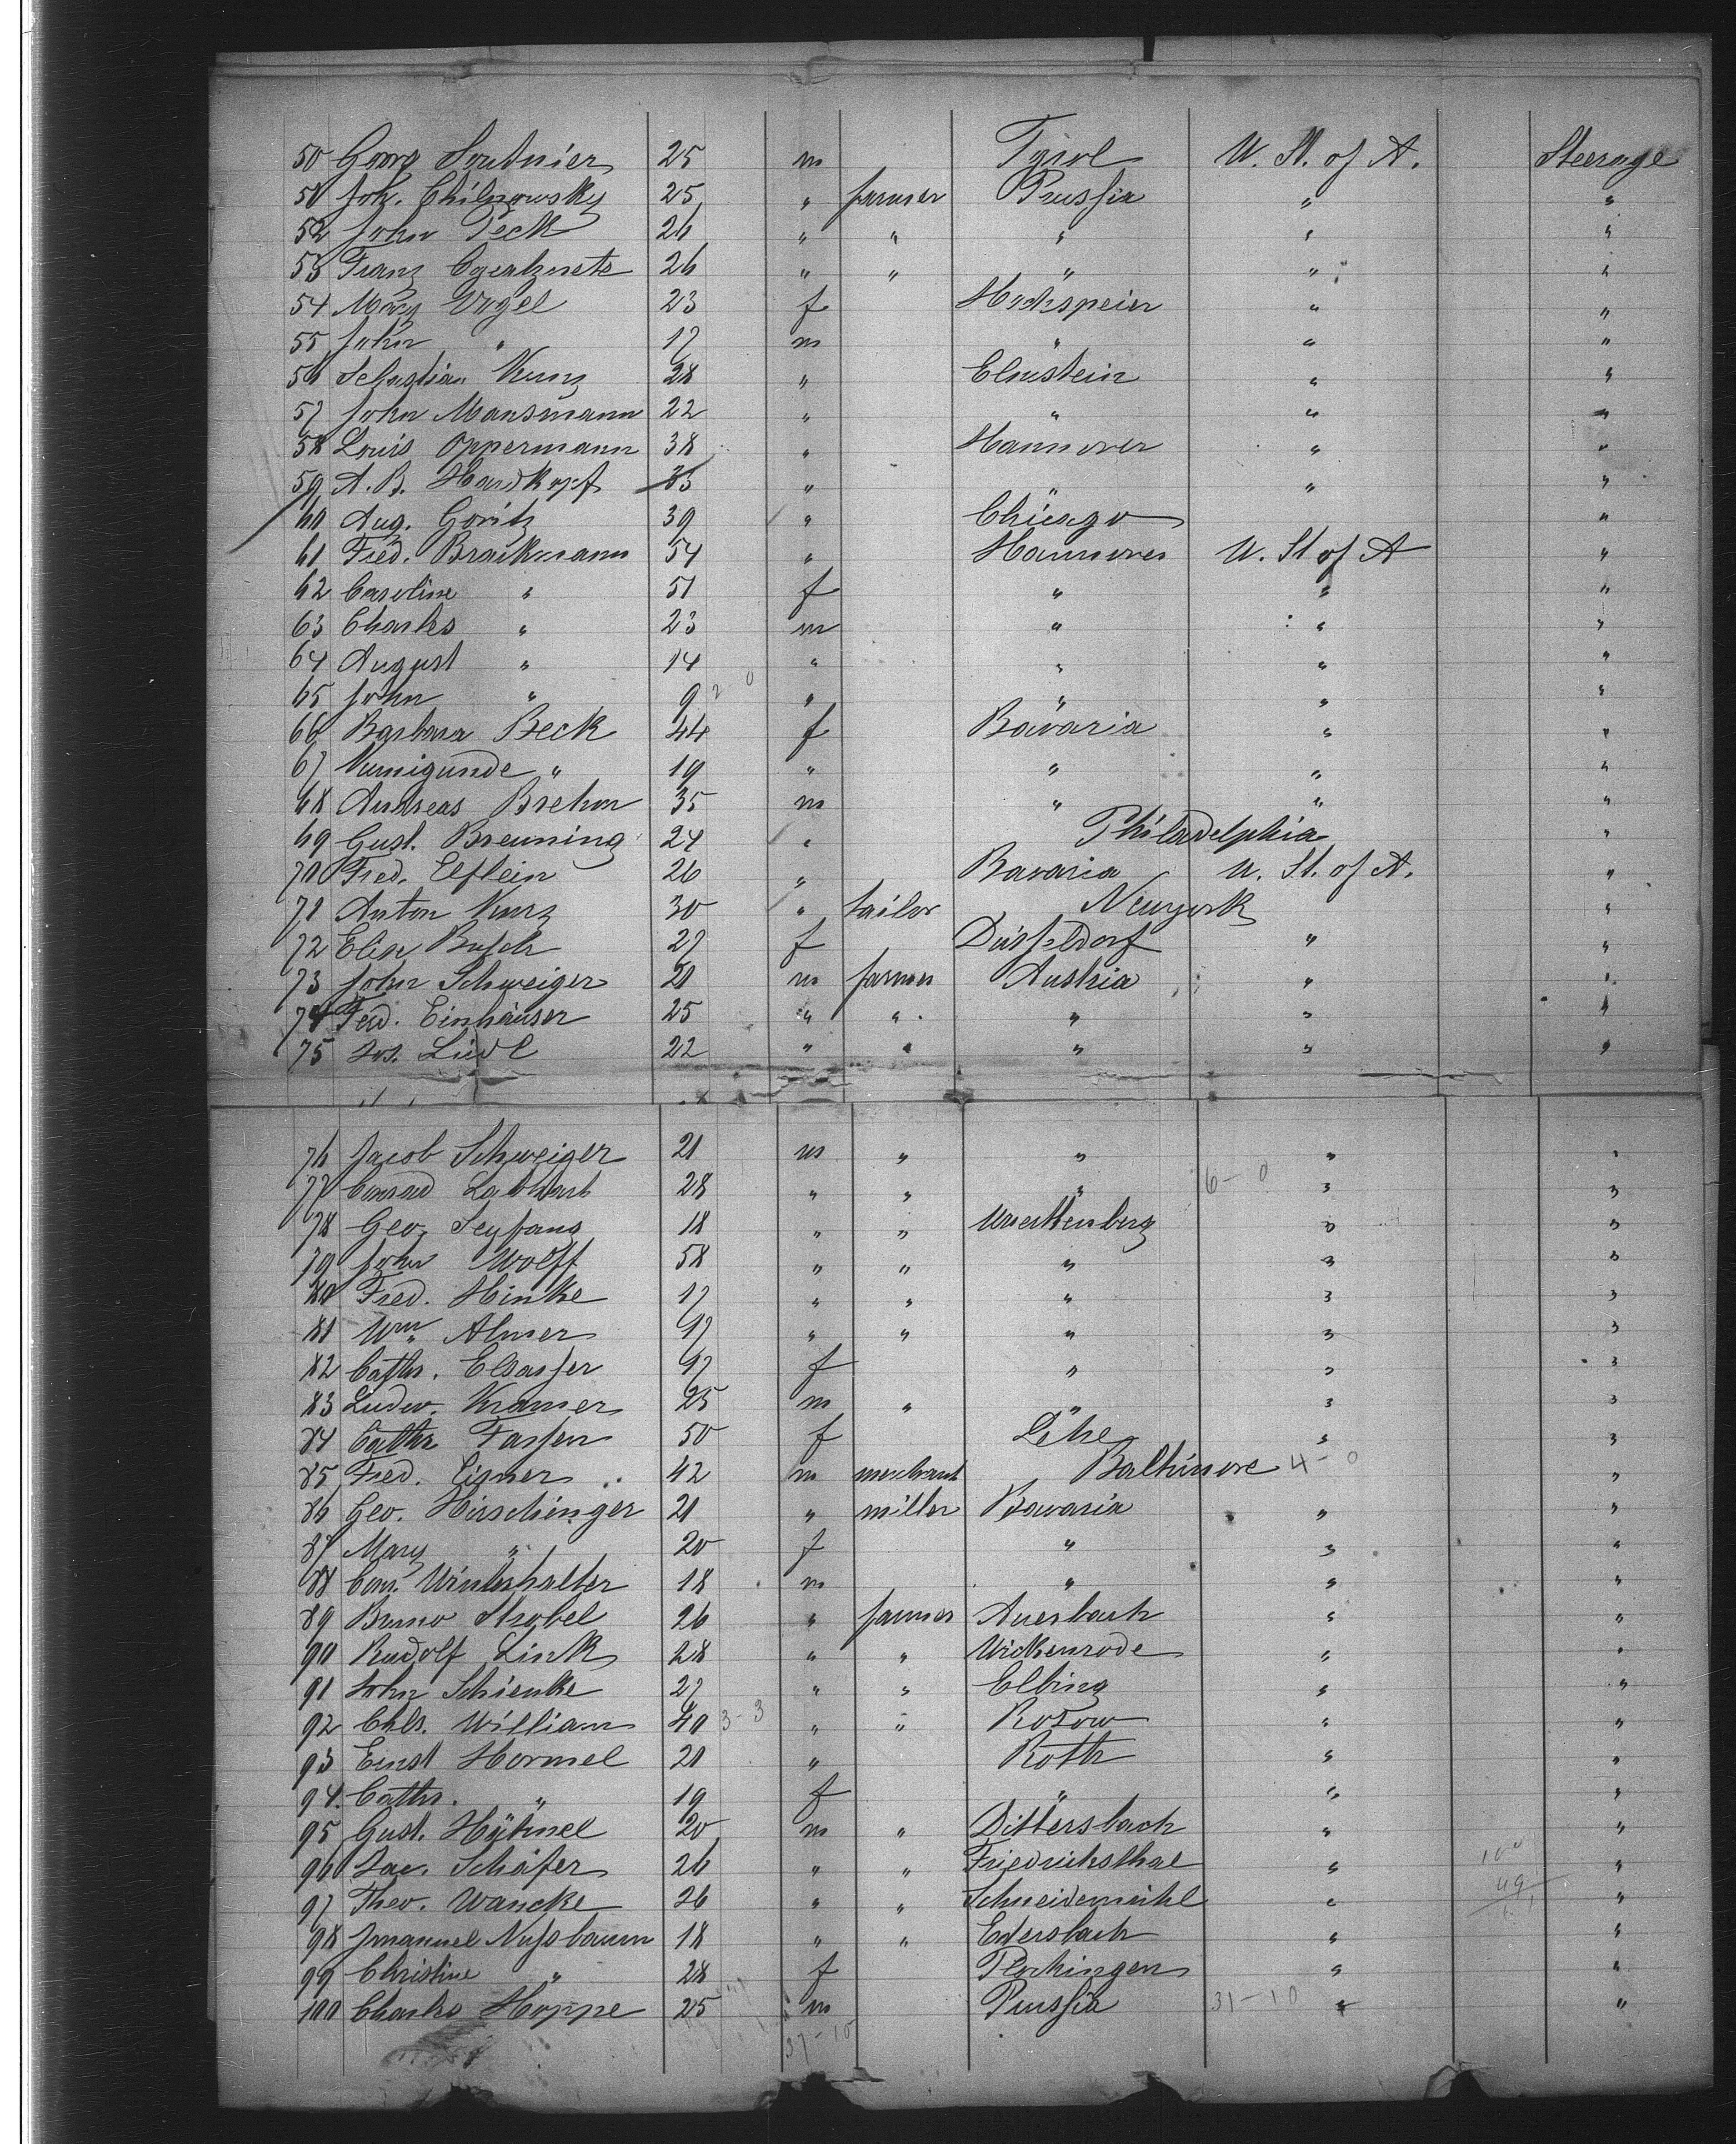 50 Georg Soutnier 25 m Tyrol U. St. of A. Steerage
51 Joh. Chilnowsky 25 " farmer Prussia " "
52 John Peck 26 " " " " "
53 Franz 26 " " " " "
54 Mary Vogel 23 f Hochspeier " "
55 John " 17 m " " "
56 Sebastian Kunz 28 " Elmstein " "
57 John Mansmann 22 " " " "
58 Louis Oppermann 38 " Hannover " "
59 A. B. Hardkopf 33 " " " "
60 Aug. Goritz 39 " Chicago "
61 Fred. Braikmann 54 " Hannover U. St of A "
62 Caroline " 51 f " " "
63 Charles " 23 m " " "
64 August " 14 " " " "
65 John " 9 2 0 " " " "
66 Barbara Beck 44 f Bavaria " "
67 Kunigunde " 19 " " " "
68 Andreas Brehm 35 m " " "
69 Gust. Breuning 24 " Philadelphia "
70 Fred. Elflein 26 " Bavaria U. St. of A. "
71 Anton Kurz 30 " tailor Newyork "
72 Elise Busch 27 f Düsseldorf " "
73 John Schweiger 21 m farmer Austria " "
74 Ferd. Einhäuser 25 " " " " "
75 Jos. Liedl 22 " " " " "
76 Jacob Schweiger 21 m " " " "
77 Conrad Labhart 28 " " " 6 - 0 " "
78 Geo. Seyfang 18 " " Wuerttenberg " "
79 John Wolff 58 " " " " "
80 Fred. Hinke 17 " " " " "
81 Wm. Almer 17 " " " " "
82 Cathr. Elsasser 17 f " " "
83 Ludw. Kramer 25 m " " " "
84 Cathr Fassen 50 f Lehe " "
85 Fred. Eisner 42 m merchant Baltimore 4 - 0 "
86 Geo. Hirschinger 21 " miller Bavaria " "
87 Mary " 20 f " " "
88 Con. Winterhalter 18 m " " "
89 Bruno Strobel 26 " farmer Auerbach " "
90 Rudolf Link 28 " " Wickenrode " "
91 John Schienke 27 " " Elbing " "
92 Chls. William 40 3 - 3 " " Rosow " "
93 Ernst Hormel 21 " Roth " "
94. Cathr. " 19 f " " "
95 Gust. Hübnel 20 m " Dittersbach " "
96 Jac. Schäfer 26 " " Friedrichsthal " 100 "
97 Theo. Wancke 26 " " Schneidemühl " 49 "
98 Jmanuel Nussbaum 18 " " Edersbach " "
99 Christine " 28 f Plochingen " "
100 Charles Hoppe 25 m Prussia 31 - 10 " "
37 - 10